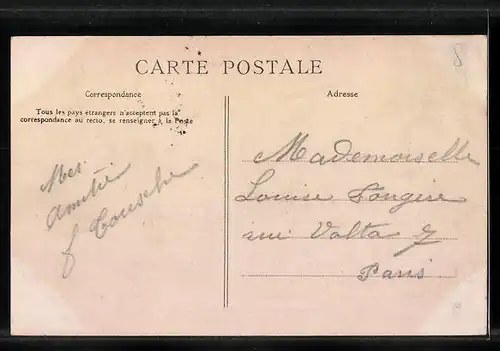 8
CARTE POSTALE
Correspondance
Tous les pays étrangers n'acceptent pas la
correspondance au recto, se renseigner à la Poste
Adresse
Mes
Amitié
Mademoiselle
Louise Fougère
rue Volta 7
Paris